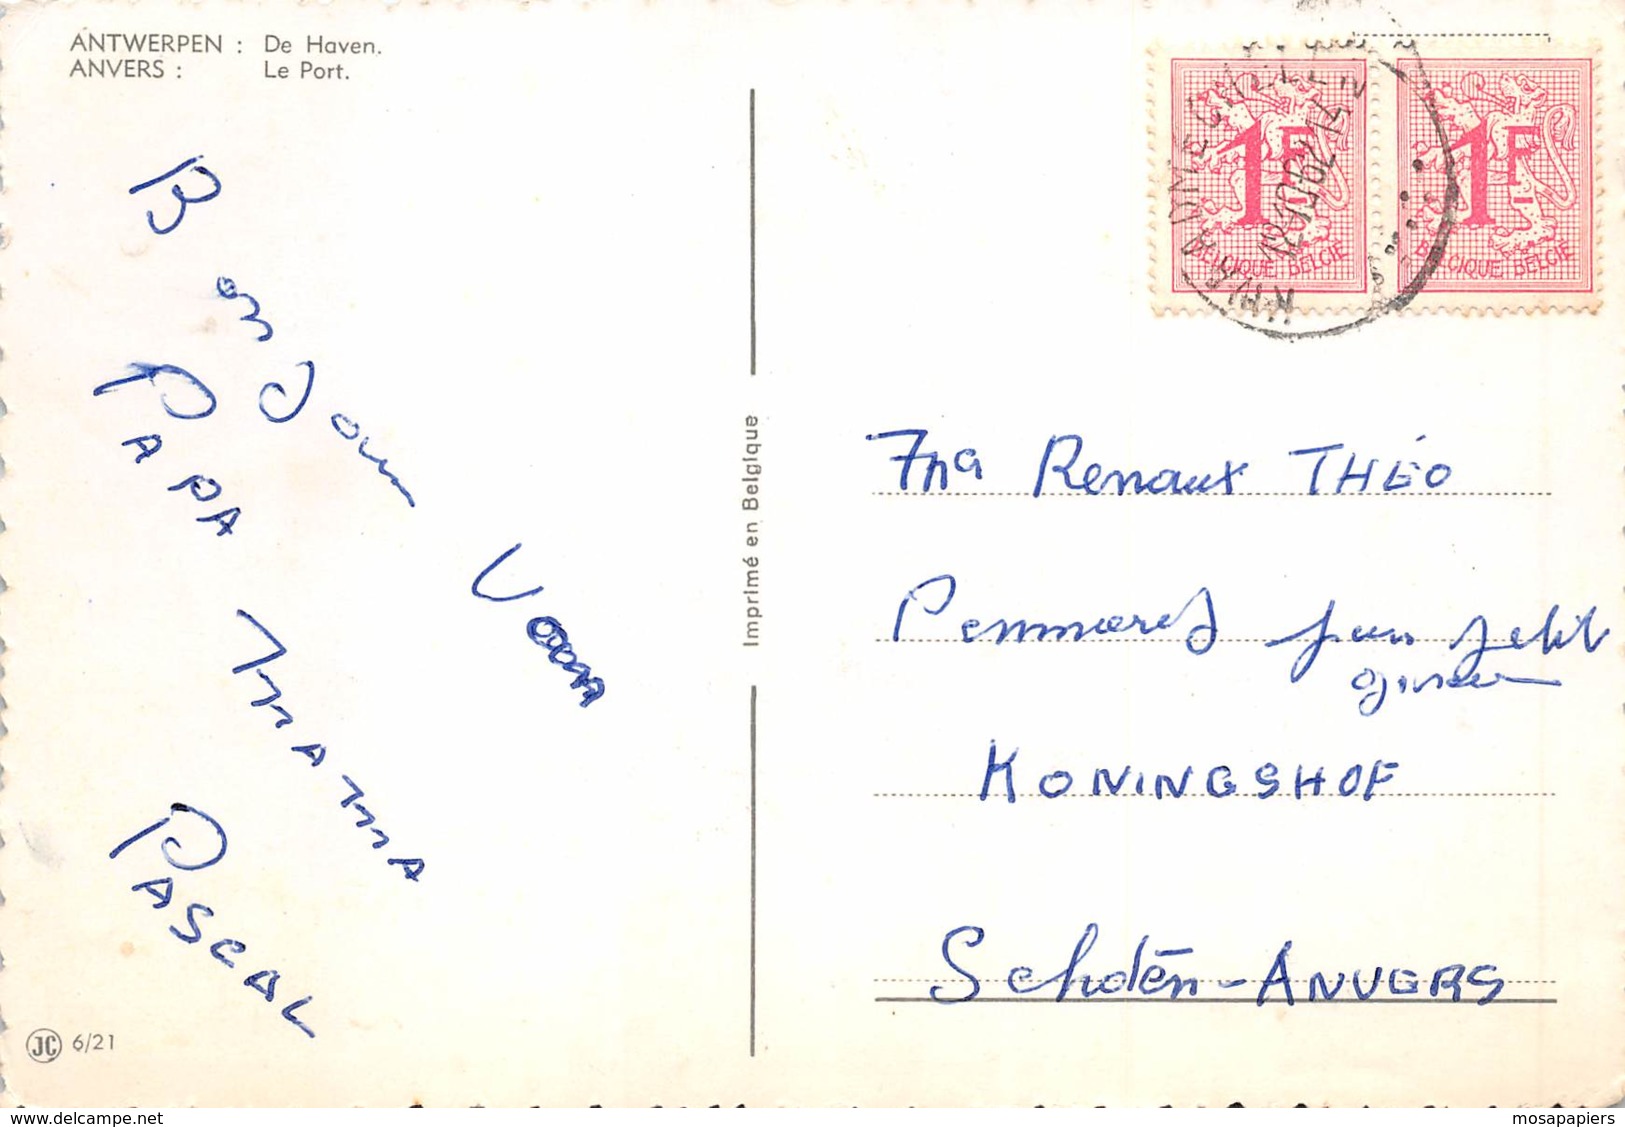 ANTWERPEN : De Haven.
ANVERS : Le Port.
Bonjour
PAPA MAMA
PASCAL
JC 6/21
Imprimé en Belgique
1F
BELGIQUE BELGIË
1F
BELGIQUE BELGIË
Renaux THÉO
KONINGSHOF
Schotën-ANVERS
www.delcampe.net
mosapapiers